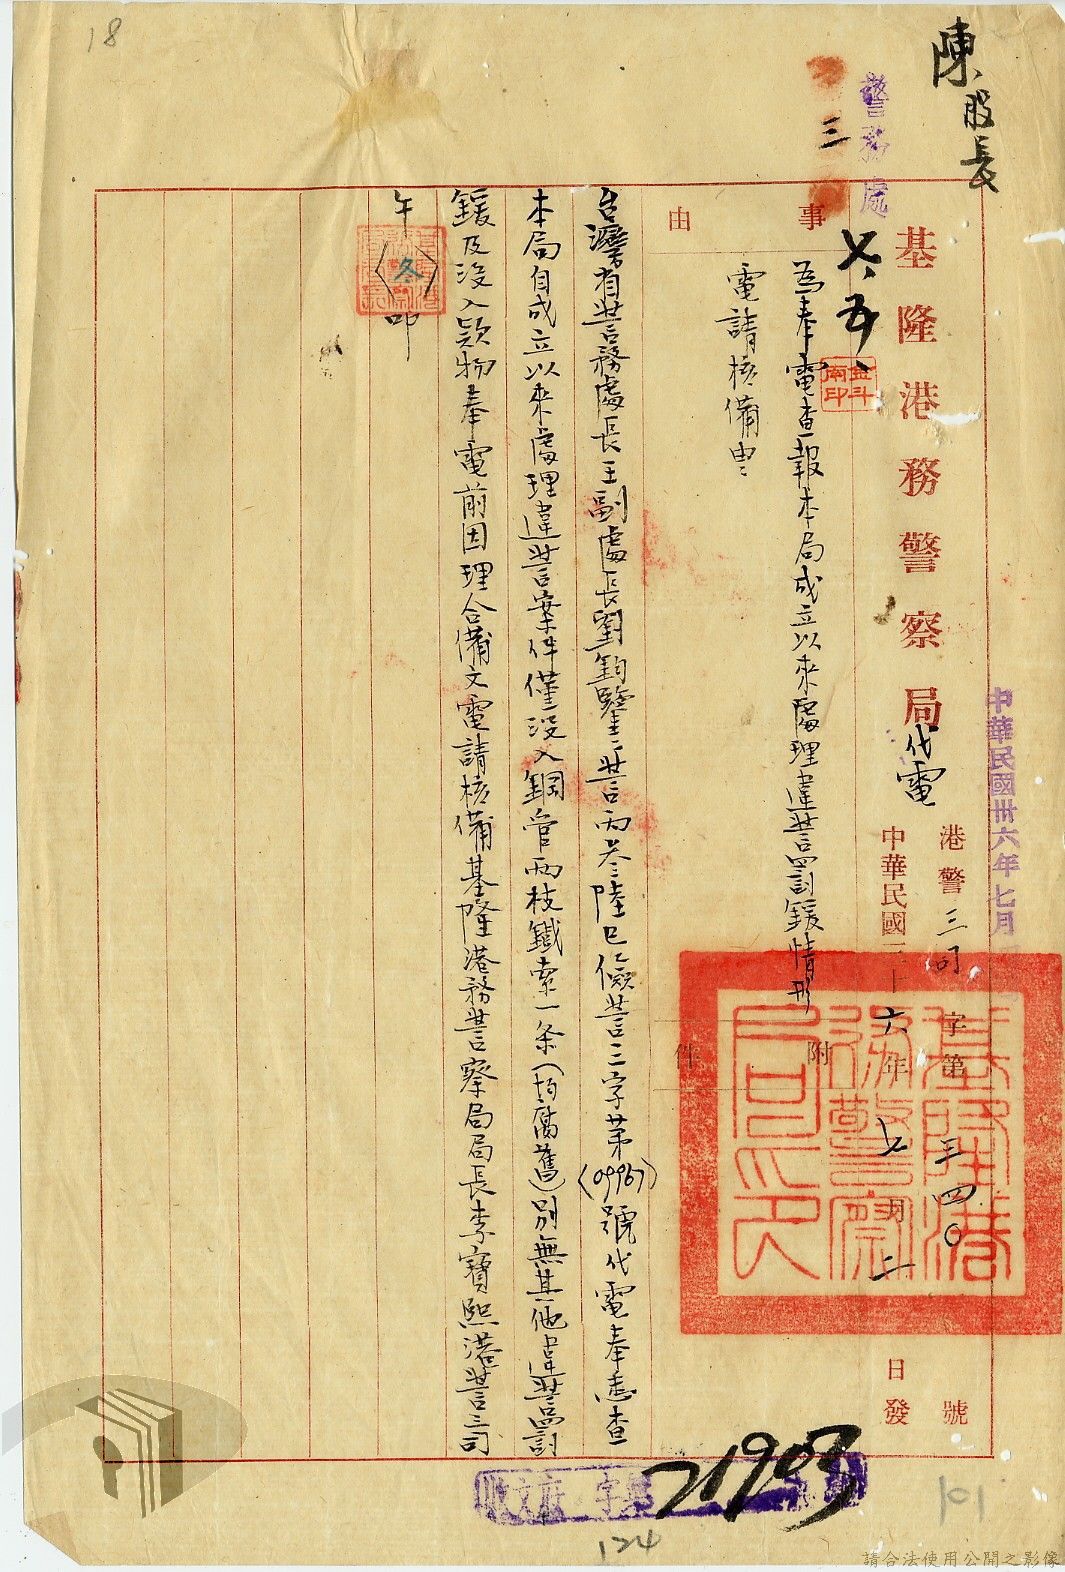 18
陳股長
警務處
三
七、五、
金斗南印
中華民國卅六年七月
基隆港務警察局代電
港警三司字第三四〇號
中華民國三十六年七月二日發
事由
為奉電查報本局成立以來處理違警罰鍰情形
電請核備由
附件
基隆港務警察局印
台灣省警務處長王副處長劉鈞鑒警丙叁陸巳儉警三字第(09967)號代電奉悉查
本局自成立以來處理違警案件僅沒入鋼管兩枝鐵索一条(均腐舊)別無其他違警罰
鍰及沒入款物奉電前因理合備文電請核備基隆港務警察局局長李寶熙港警三司
午(冬)叩
收文府字第
21903
101
124
請合法使用公開之影像